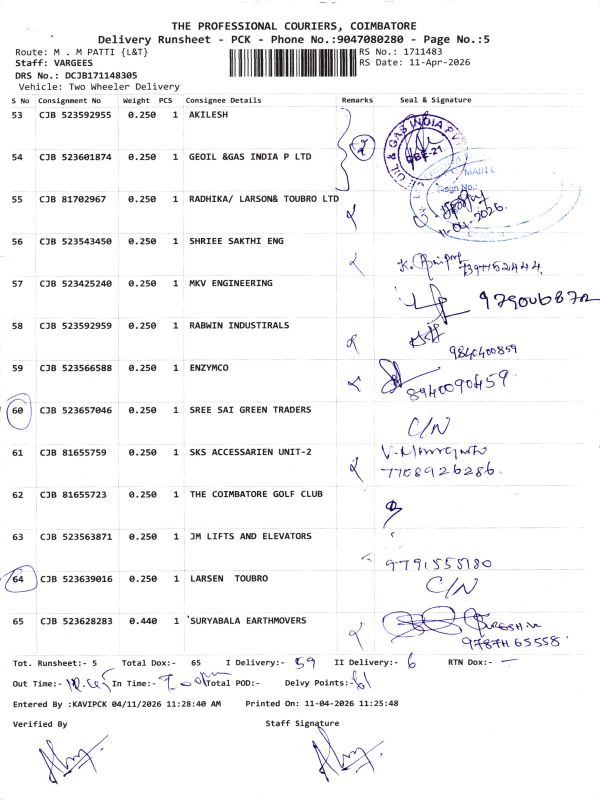 THE PROFESSIONAL COURIERS, COIMBATORE
Delivery Runsheet - PCK - Phone No.:9047080280 - Page No.:5
Route: M . M PATTI {L&T} RS No.: 1711483
Staff: VARGEES RS Date: 11-Apr-2026
DRS No.: DCJB171148305
Vehicle: Two Wheeler Delivery
S No Consignment No Weight PCS Consignee Details Remarks Seal & Signature
53 CJB 523592955 0.250 1 AKILESH
54 CJB 523601874 0.250 1 GEOIL &GAS INDIA P LTD
55 CJB 81702967 0.250 1 RADHIKA/ LARSON& TOUBRO LTD
11-04-2026.
56 CJB 523543450 0.250 1 SHRIEE SAKTHI ENG
57 CJB 523425240 0.250 1 MKV ENGINEERING
58 CJB 523592959 0.250 1 RABWIN INDUSTIRALS
9840400859
59 CJB 523566588 0.250 1 ENZYMCO
8940090459.
60 CJB 523657046 0.250 1 SREE SAI GREEN TRADERS C/N
61 CJB 81655759 0.250 1 SKS ACCESSARIEN UNIT-2
7708926286.
62 CJB 81655723 0.250 1 THE COIMBATORE GOLF CLUB
63 CJB 523563871 0.250 1 JM LIFTS AND ELEVATORS
9791555180
64 CJB 523639016 0.250 1 LARSEN TOUBRO C/N
65 CJB 523628283 0.440 1 SURYABALA EARTHMOVERS
Tot. Runsheet:- 5 Total Dox:- 65 I Delivery:- 59 II Delivery:- 6 RTN Dox:- —
Out Time:- In Time:- Total POD:- Delvy Points:- 61
Entered By :KAVIPCK 04/11/2026 11:28:40 AM Printed On: 11-04-2026 11:25:48
Verified By Staff Signature